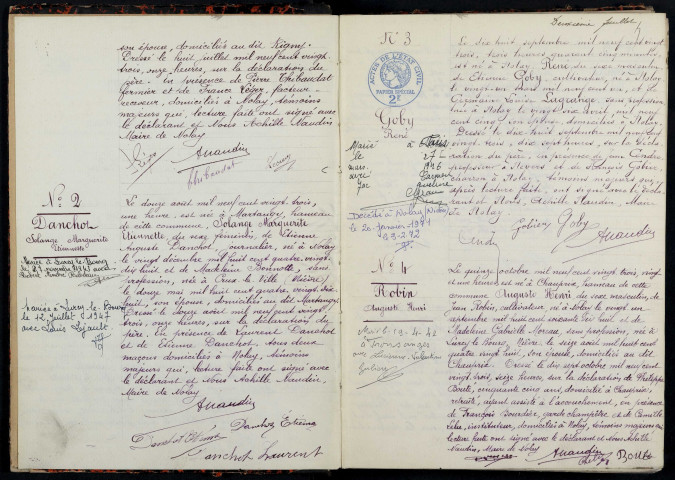 son épouse, domiciliés au dit Rigny.
Dressé le huit juillet mil neuf cent vingt
trois, onze heures, sur la déclaration du
père. En présence de Pierre Thibaudat
fermier et de France Léger, facteur-
receveur, domiciliés à Nolay, témoins
majeurs qui, lecture faite ont signé avec
le déclarant et Nous Achille Naudin
Maire de Nolay
Léger
ANaudin
Thibaudat
No 2
Danchot
Solange Marguerite
Etiennette
Mariée à Lurcy-le-Bourg
avec
mariée à Lurcy-le-Bourg
le 12 Juillet 1947
avec Louis Legault
Le douze août mil neuf cent vingt trois,
une heure, est née à Martangy, hameau
de cette commune, Solange Marguerite
Etiennette, du sexe féminin, de Etienne
Auguste Danchot, journalier, né à Nolay
le vingt décembre mil huit cent quatre vingt
dix huit et de Madeleine Bonnotte, sans
profession, née à Crux la Ville (Nièvre),
le douze mai mil huit cent quatre vingt dix
huit, son épouse, domiciliés au dit Martangy
Dressé le douze août mil neuf cent vingt
trois, onze heures, sur la déclaration du
père. En présence de Laurent Danchot
et de Etienne Danchot, tous deux
maçons domiciliés à Nolay, témoins
majeurs qui, lecture faite ont signé avec
le déclarant et Nous Achille Naudin,
Maire de Nolay
ANaudin
Danchot Etienne
Danchot
Danchot Laurent
Deuxième feuillet
No 3
ACTES DE L'ETAT CIVIL
PAPIER SPECIAL
2F
Goby
René
Marié à
le 27
mars 1946
avec
Décédé à Nolay (Nièvre)
le 20 janvier 1971
Le dix huit septembre mil neuf cent vingt
trois, trois heures quarante cinq minutes
est né à Nolay René du sexe masculin
de Etienne Goby, cultivateur, né à Nolay
le vingt-un mars mil neuf cent un, et de
Lagrange, sans profession,
née à Nolay le vingt six avril mil neuf
cent cinq, son épouse, domiciliés à Nolay.
Dressé le dix huit septembre mil neuf cent
vingt trois, dix sept heures, sur la décla-
ration du père, en présence de
et de François Gobier,
charron à Nolay, témoins majeurs qui,
après lecture faite, ont signé avec le décla-
rant et Nous, Achille Naudin, Maire
de Nolay
Goby
ANaudin
No 4
Robin
Auguste Henri
Marié 19-4-42
à
avec
Le quinze octobre mil neuf cent vingt trois, vingt
et une heures est né à Chauprix, hameau de cette
commune Auguste Henri du sexe masculin, de
Jean Robin, cultivateur, né à Nolay le vingt un
septembre mil huit cent soixante dix huit et de
Madeleine Gabrielle Moreau, sans profession, née à
Lurcy le Bourg, Nièvre, le seize août mil huit cent
quatre vingt huit, son épouse, domiciliés au dit
Chauprix. Dressé le dix sept octobre mil neuf cent
vingt trois, seize heures, sur la déclaration de Philippe
Boute, cinquante cinq ans, domicilié à Chauprix,
retraité, ayant assisté à l'accouchement, en présence
de François Bourdier, garde champêtre et de Camille
instituteur, domiciliés à Nolay, témoins majeurs qui
lecture faite ont signé avec le déclarant et Nous Achille
Naudin, Maire de Nolay
ANaudin
Boute